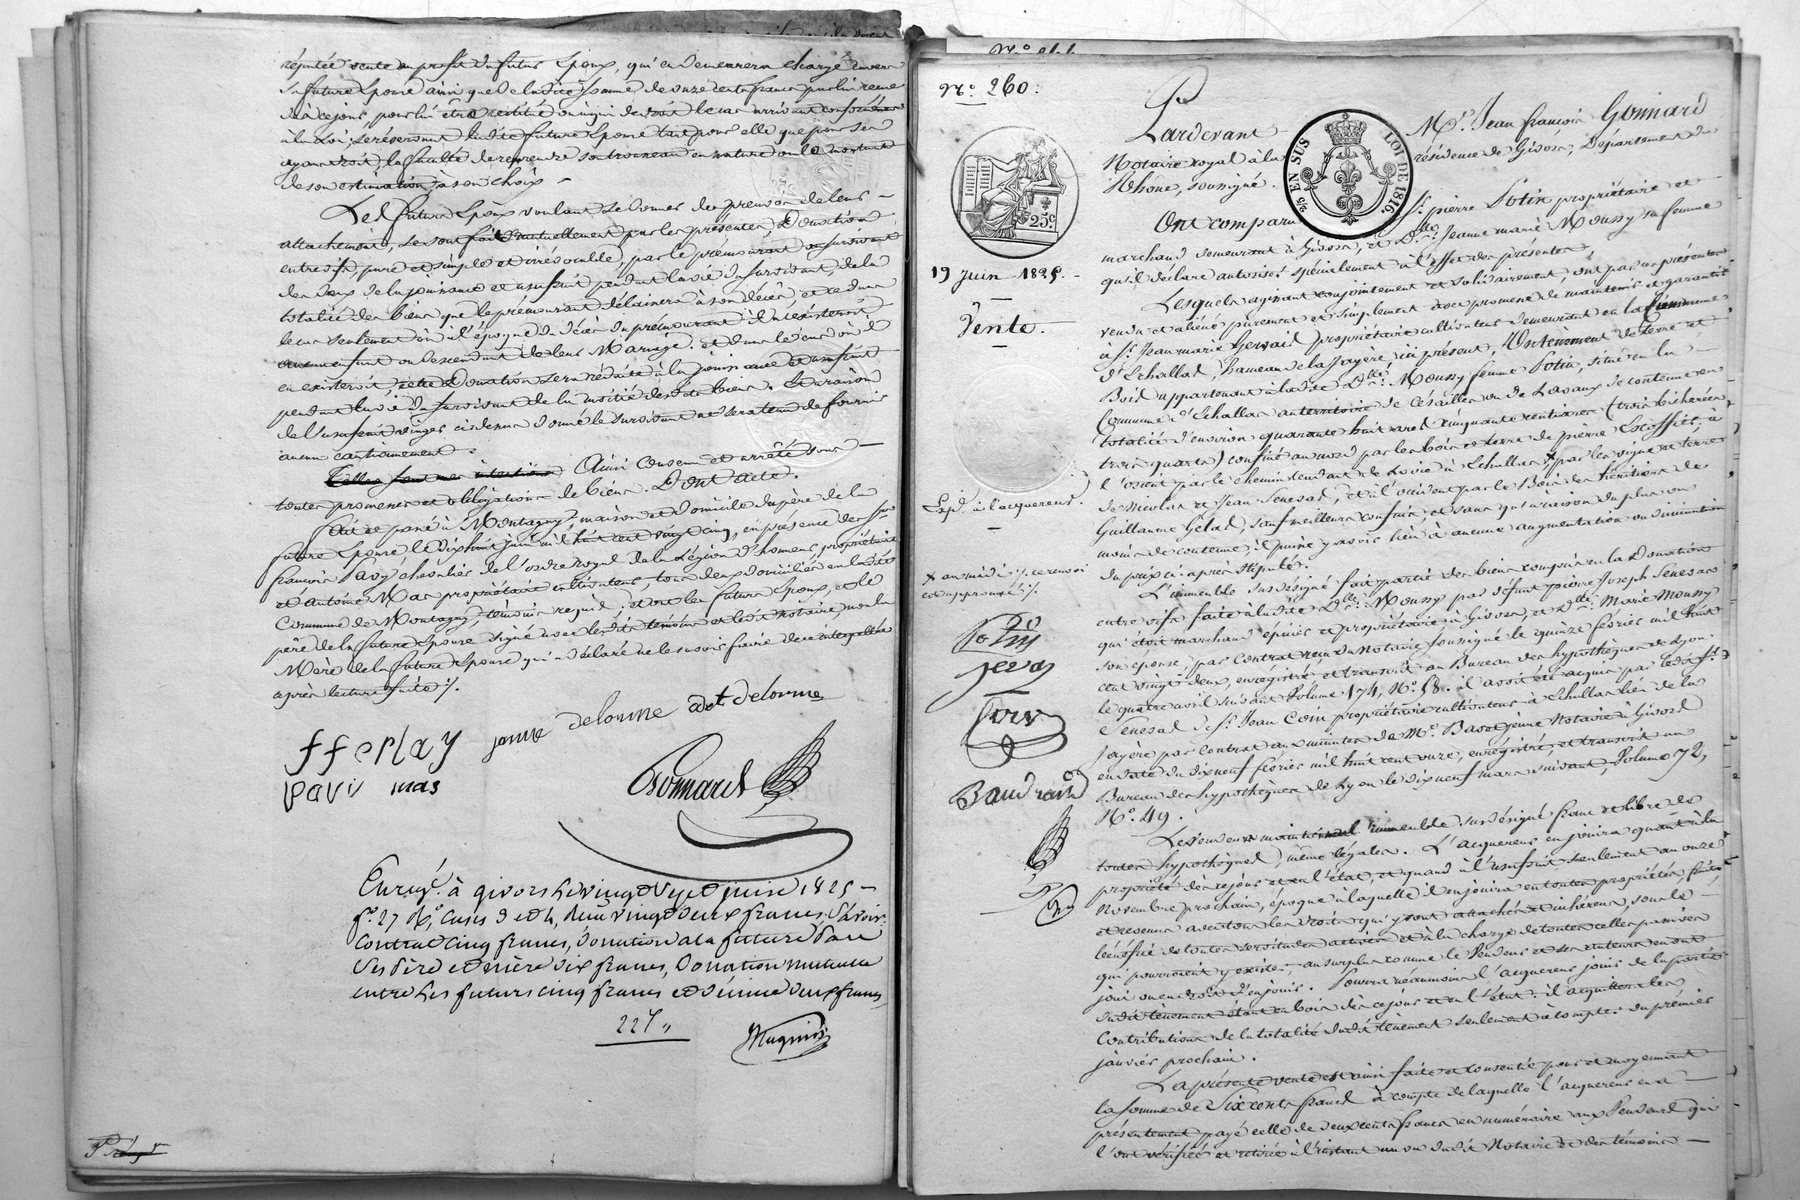 réputée vente au profit du futur Epoux, qui en demeurera chargé envers
sa future Epouse ainsi que de ladite somme de onze cents francs par lui reçue
à la loi; se réservant ladite future Epouse tant pour elle que pour ses
ayans droit, la faculté de reprendre son trousseau en nature ou le montant
de son estimation à son choix.
Les futurs Epoux voulant se donner des preuves de leur
attachement, se sont fait mutuellement par les présentes, Donation
entre vifs, pure et simple et irrévocable, par le prémourant au survivant
des deux de la jouissance et usufruit pendant la vie du survivant, de la
totalité des biens que le prémourant délaissera à son décès, et ce dans
le cas seulement où à l'époque du décès du prémourant il n'existeroit
aucun enfant ou descendant de leur Mariage; et dans le cas où il
en existeroit, cette Donation sera réduite à la jouissance et usufruit
pendant la vie du survivant de la moitié desdits biens.
de l'usufruit ci dessus donné le survivant ne sera tenu de fournir
aucun cautionnement.
Ainsi convenu et arrêté sous
toutes promesses et obligations de biens. Dont acte.
Fait et passé à Montagny, maison et domicile du père de la
future Epouse le dix huit juin mil huit cent vingt cinq, en présence des srs
françois Pavy chevalier de l'ordre royal de la Légion d'honneur, propriétaire
et Antoine Mas propriétaire cultivateur, tous deux domiciliés en ladite
Commune de Montagny, témoins requis; et ont les futurs Epoux, et le
père de la future Epouse signé avec lesdits témoins et ledit notaire, non la
Mère de la future Epouse qui a déclaré ne le savoir faire de ce interpellée
après lecture faite ./.
ffeplay janne delorme adt delorme
pavi mas
Gonnard
Enregé. à givors le vingt Sept juin 1825
fo. 27 Ro. cases 3 et 4, Reçu vingt deux francs, Savoir:
Contrat cinq francs, donation à la future Par
Ses Père et mère dix francs, Donation mutuelle
entre les futurs cinq francs et dixième deux francs
22f "
No. 260.
25 EN SUS
LOI DE 1816.
25c.
19 Juin 1825.
Vente.
Expd. à l'acquereur.
Baudrand
Pardevant Me. Jean françois Gonnard
Notaire royal à la résidence de Givors, Département du
Rhône, soussigné.
Ont comparu Sr. pierre Potin propriétaire et
marchand demeurant à Givors, et Dlle. Jeanne marie Moussy sa femme
qu'il déclare autoriser spécialement à l'effet des présentes.
Lesquels agissant conjointement et solidairement ont par ces présentes
vendu et aliéné purement et simplement avec promesse de maintenir et garantir
à Sr. Jean marie Gervais propriétaire cultivateur demeurant en la Commune
d'Echallas, hameau de la Jayère, ici présent, Un tènement de terre et
Bois appartenant à ladite Dlle. Moussy femme Potin, situé en la
Commune d'Echallas au territoire de
totalité d'environ quarante huit ares cinquante centiares (trois bicherées
trois quarts) confiné au nord par les bois et terre de pierre
l'orient par le chemin tendant de Loire à Echallas; x par les vigne et terre
de Nicolas et Jean Senevas, et à l'occident par le Bois des héritiers de
Guillaume Gélas, sauf meilleurs confins, et sans qu'à raison du plus ou
moins de contenue, il puisse y avoir lieu à aucune augmentation ou diminution
du prix ci-après stipulé.
L'immeuble susdésigné fait partie des biens compris en la Donation
entre vifs faite à ladite Dlle. Moussy par défunt pierre Joseph Senevas
qui étoit marchand épicier et propriétaire à Givors, et Dlle. Marie Moussy
son épouse, par contrat reçu du Notaire soussigné le quinze février mil huit
cent vingt deux, enregistré et transcrit au Bureau des hypothèques de Lyon
le quatre avril suivant Volume 174, No. 58. il avoit été acquis par ledit Sr.
Senevas de Sr. Jean Coin propriétaire cultivateur à Echallas lieu de la
Jayère par contrat aux minutes de Me. Notaire à Givors
en date du dix neuf février mil huit cent onze, enregistré, et transcrit au
Bureau des hypothèques de Lyon le dix neuf mars suivant, Volume 72,
No. 49.
Les vendeurs immeuble susdésigné franc et libre de
toutes hypothèques, même légales. L'acquereur en jouira quant à la
propriété dès ce jour et en l'état, et quant à l'usufruit seulement au onze
Novembre prochain, époque à laquelle il en jouira en toutes propriétés, fruits
et revenus avec tous les droits qui y sont attachés et inhérens, sous le
bénéfice de toutes servitudes actives et à la charge de toutes celles passives
qui pourroient y exister, au surplus comme le Vendeur et ses auteurs en ont
joui ou eu droit d'en jouir. Pourra néanmoins l'acquereur jouir de la partie
dudit tènement étant en bois dès ce jour et en l'état: il acquittera les
Contributions de la totalité dudit tènement seulement à compter du premier
janvier prochain.
La présente vente est ainsi faite et consentie pour et moyennant
la somme de Six cents francs à compte de laquelle l'acquereur en a
présentement payé celle de deux cents francs en numéraire aux Vendeurs qui
l'ont vérifiée et retirée à l'instant au vu dudit Notaire et des témoins